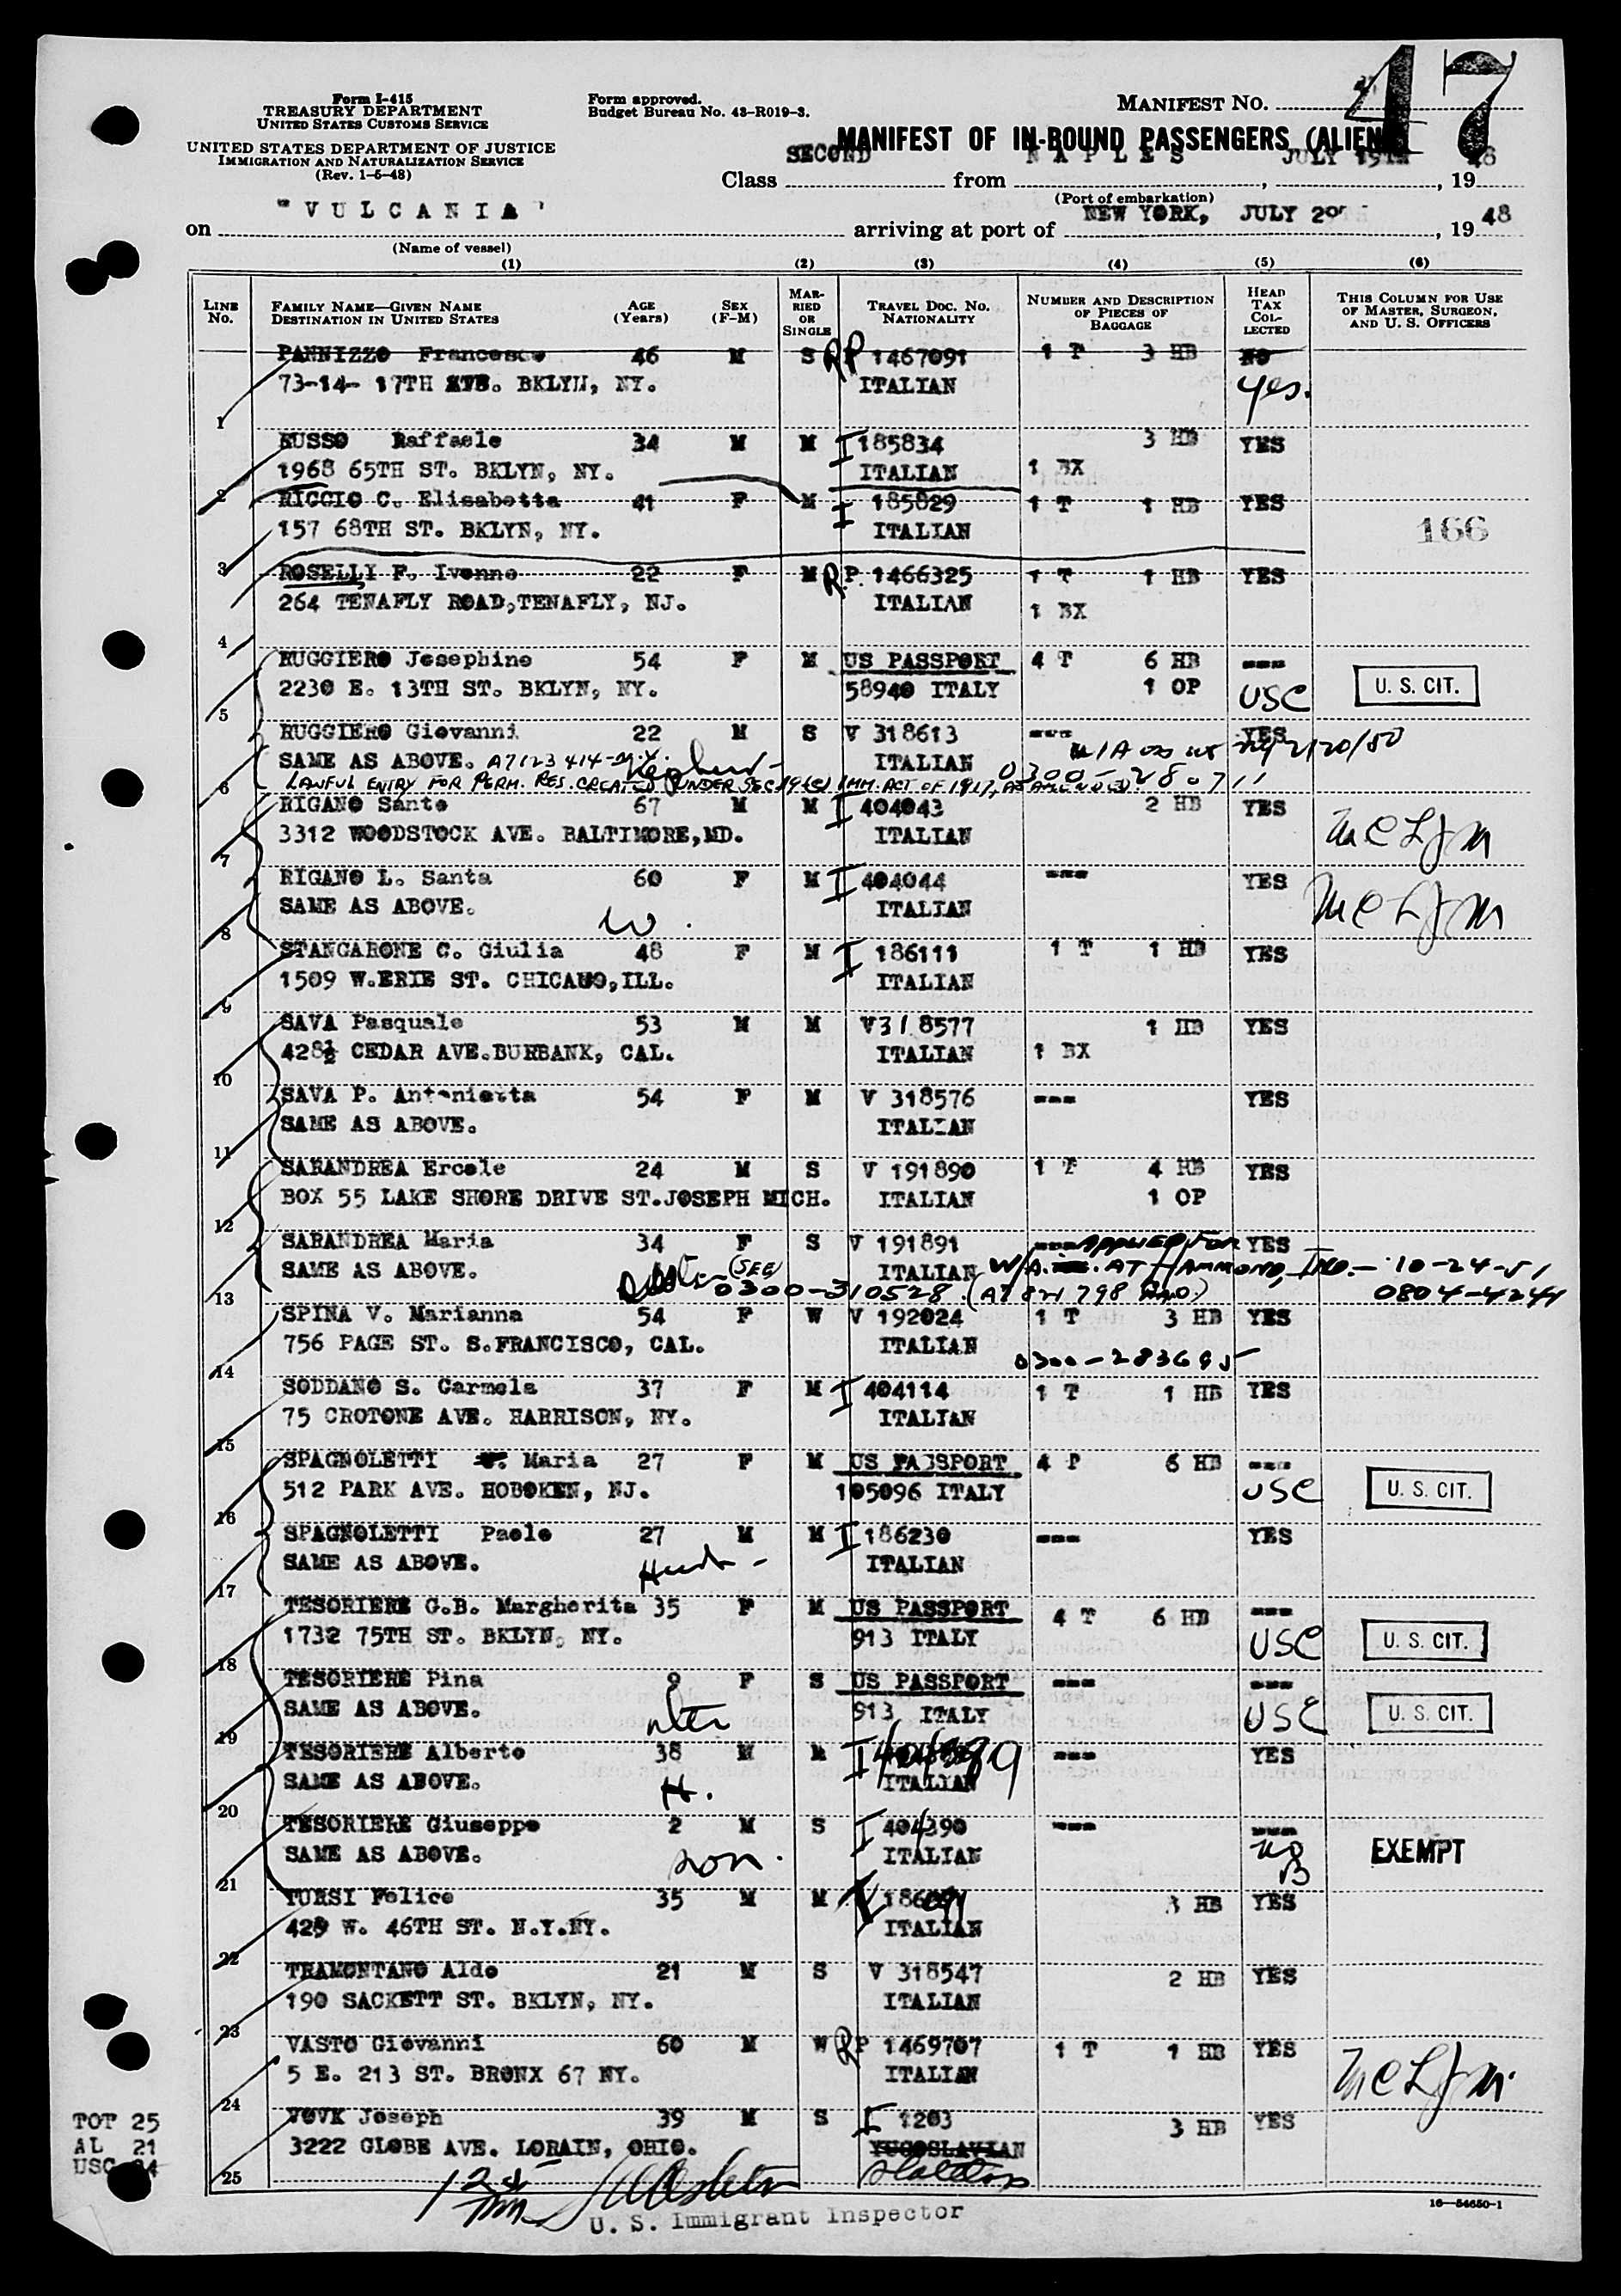 47
Form I-415
TREASURY DEPARTMENT
UNITED STATES CUSTOMS SERVICE
UNITED STATES DEPARTMENT OF JUSTICE
IMMIGRATION AND NATURALIZATION SERVICE
(Rev. 1-6-48)
Form approved.
Budget Bureau No. 43-R019-3.
MANIFEST NO.
MANIFEST OF IN-BOUND PASSENGERS (ALIEN
Class SECOND from NAPLES, JULY 19TH, 1948
(Port of embarkation)
on "VULCANIA" arriving at port of NEW YORK, JULY 29, 1948
(Name of vessel)
(1) (2) (3) (4) (5) (6)
LINE No. FAMILY NAME—GIVEN NAME DESTINATION IN UNITED STATES AGE (Years) SEX (F-M) MARRIED OR SINGLE TRAVEL DOC. No. NATIONALITY NUMBER AND DESCRIPTION OF PIECES OF BAGGAGE HEAD TAX COLLECTED THIS COLUMN FOR USE OF MASTER, SURGEON, AND U. S. OFFICERS
PANNIZZO Francesco 46 M S RP 1467091 1 T 3 HB NO
73-14- 17TH AVE. BKLYN, NY. ITALIAN yes.
1
RUSSO Raffaele 34 M M I 185834 3 HB YES
1968 65TH ST. BKLYN, NY. ITALIAN 1 BX
2
RIGGIO C. Elisabetta 41 F M I 185829 1 T 1 HB YES
157 68TH ST. BKLYN, NY. ITALIAN 166
3
ROSELLI F. Ivonne 22 F M RP. 1466325 1 T 1 HB YES
264 TENAFLY ROAD, TENAFLY, NJ. ITALIAN 1 BX
4
RUGGIERO Josephine 54 F M US PASSPORT 4 T 6 HB ---
2230 E. 13TH ST. BKLYN, NY. 58940 ITALY 1 OP USC U. S. CIT.
5
RUGGIERO Giovanni 22 M S V 318613 --- YES
SAME AS ABOVE. A7123414-N.Y. Nephew ITALIAN 2/20/50
LAWFUL ENTRY FOR PERM. RES. CREATED UNDER SEC. 19(c) IMM. ACT OF 1917, AS AMENDED. 0300-280711
6
RIGANO Sante 67 M M I 404043 2 HB YES
3312 WOODSTOCK AVE. BALTIMORE, MD. ITALIAN
7
RIGANO L. Santa 60 F M I 404044 --- YES
SAME AS ABOVE. W. ITALIAN
8
STANCARONE C. Giulia 48 F M I 186111 1 T 1 HB YES
1509 W.ERIE ST. CHICAGO, ILL. ITALIAN
9
SAVA Pasquale 53 M M V318577 1 HB YES
428½ CEDAR AVE. BURBANK, CAL. ITALIAN 1 BX
10
SAVA P. Antonietta 54 F M V 318576 --- YES
SAME AS ABOVE. ITALIAN
11
SARANDREA Ercole 24 M S V 191890 1 T 4 HB YES
BOX 55 LAKE SHORE DRIVE ST.JOSEPH MICH. ITALIAN 1 OP
12
SARANDREA Maria 34 F S V 191891 --- APPLIED FOR YES
SAME AS ABOVE. (SEE) ITALIAN W/A. AT HAMMOND, IND. - 10-24-51
0300-310528. 0804-4244
13
SPINA V. Marianna 54 F W V 192024 1 T 3 HB YES
756 PAGE ST. S.FRANCISCO, CAL. ITALIAN 0300-283695
14
SODDANO S. Carmela 37 F M I 404114 1 T 1 HB YES
75 CROTONE AVE. HARRISON, NY. ITALIAN
15
SPAGNOLETTI Maria 27 F M US PASSPORT 4 P 6 HB ---
512 PARK AVE. HOBOKEN, NJ. 105096 ITALY USC U. S. CIT.
16
SPAGNOLETTI Paolo 27 M M I 186230 --- YES
SAME AS ABOVE. Husb - ITALIAN
17
TESORIERE G.B. Margherita 35 F M US PASSPORT 4 T 6 HB ---
1732 75TH ST. BKLYN, NY. 913 ITALY USC U. S. CIT.
18
TESORIERE Pina 9 F S US PASSPORT --- ---
SAME AS ABOVE. 913 ITALY USC U. S. CIT.
19
TESORIERE Alberto 38 M M I --- YES
SAME AS ABOVE. H. ITALIAN
20
TESORIERE Giuseppe 2 M S I 404390 --- ---
SAME AS ABOVE. son. ITALIAN EXEMPT
21
TURSI Felice 35 M M 3 HB YES
429 W. 46TH ST. N.Y.NY. ITALIAN
22
TRAMONTANO Aldo 21 M S V 318547 2 HB YES
190 SACKETT ST. BKLYN, NY. ITALIAN
23
VASTO Giovanni 60 M W RP 1469707 1 T 1 HB YES
5 E. 213 ST. BRONX 67 NY. ITALIAN
24
VOVK Joseph 39 M S I 1203 3 HB YES
3222 GLOBE AVE. LORAIN, OHIO. YUGOSLAVIAN
25
TOT 25
AL 21
USC 04
U. S. Immigrant Inspector
16—54650-1